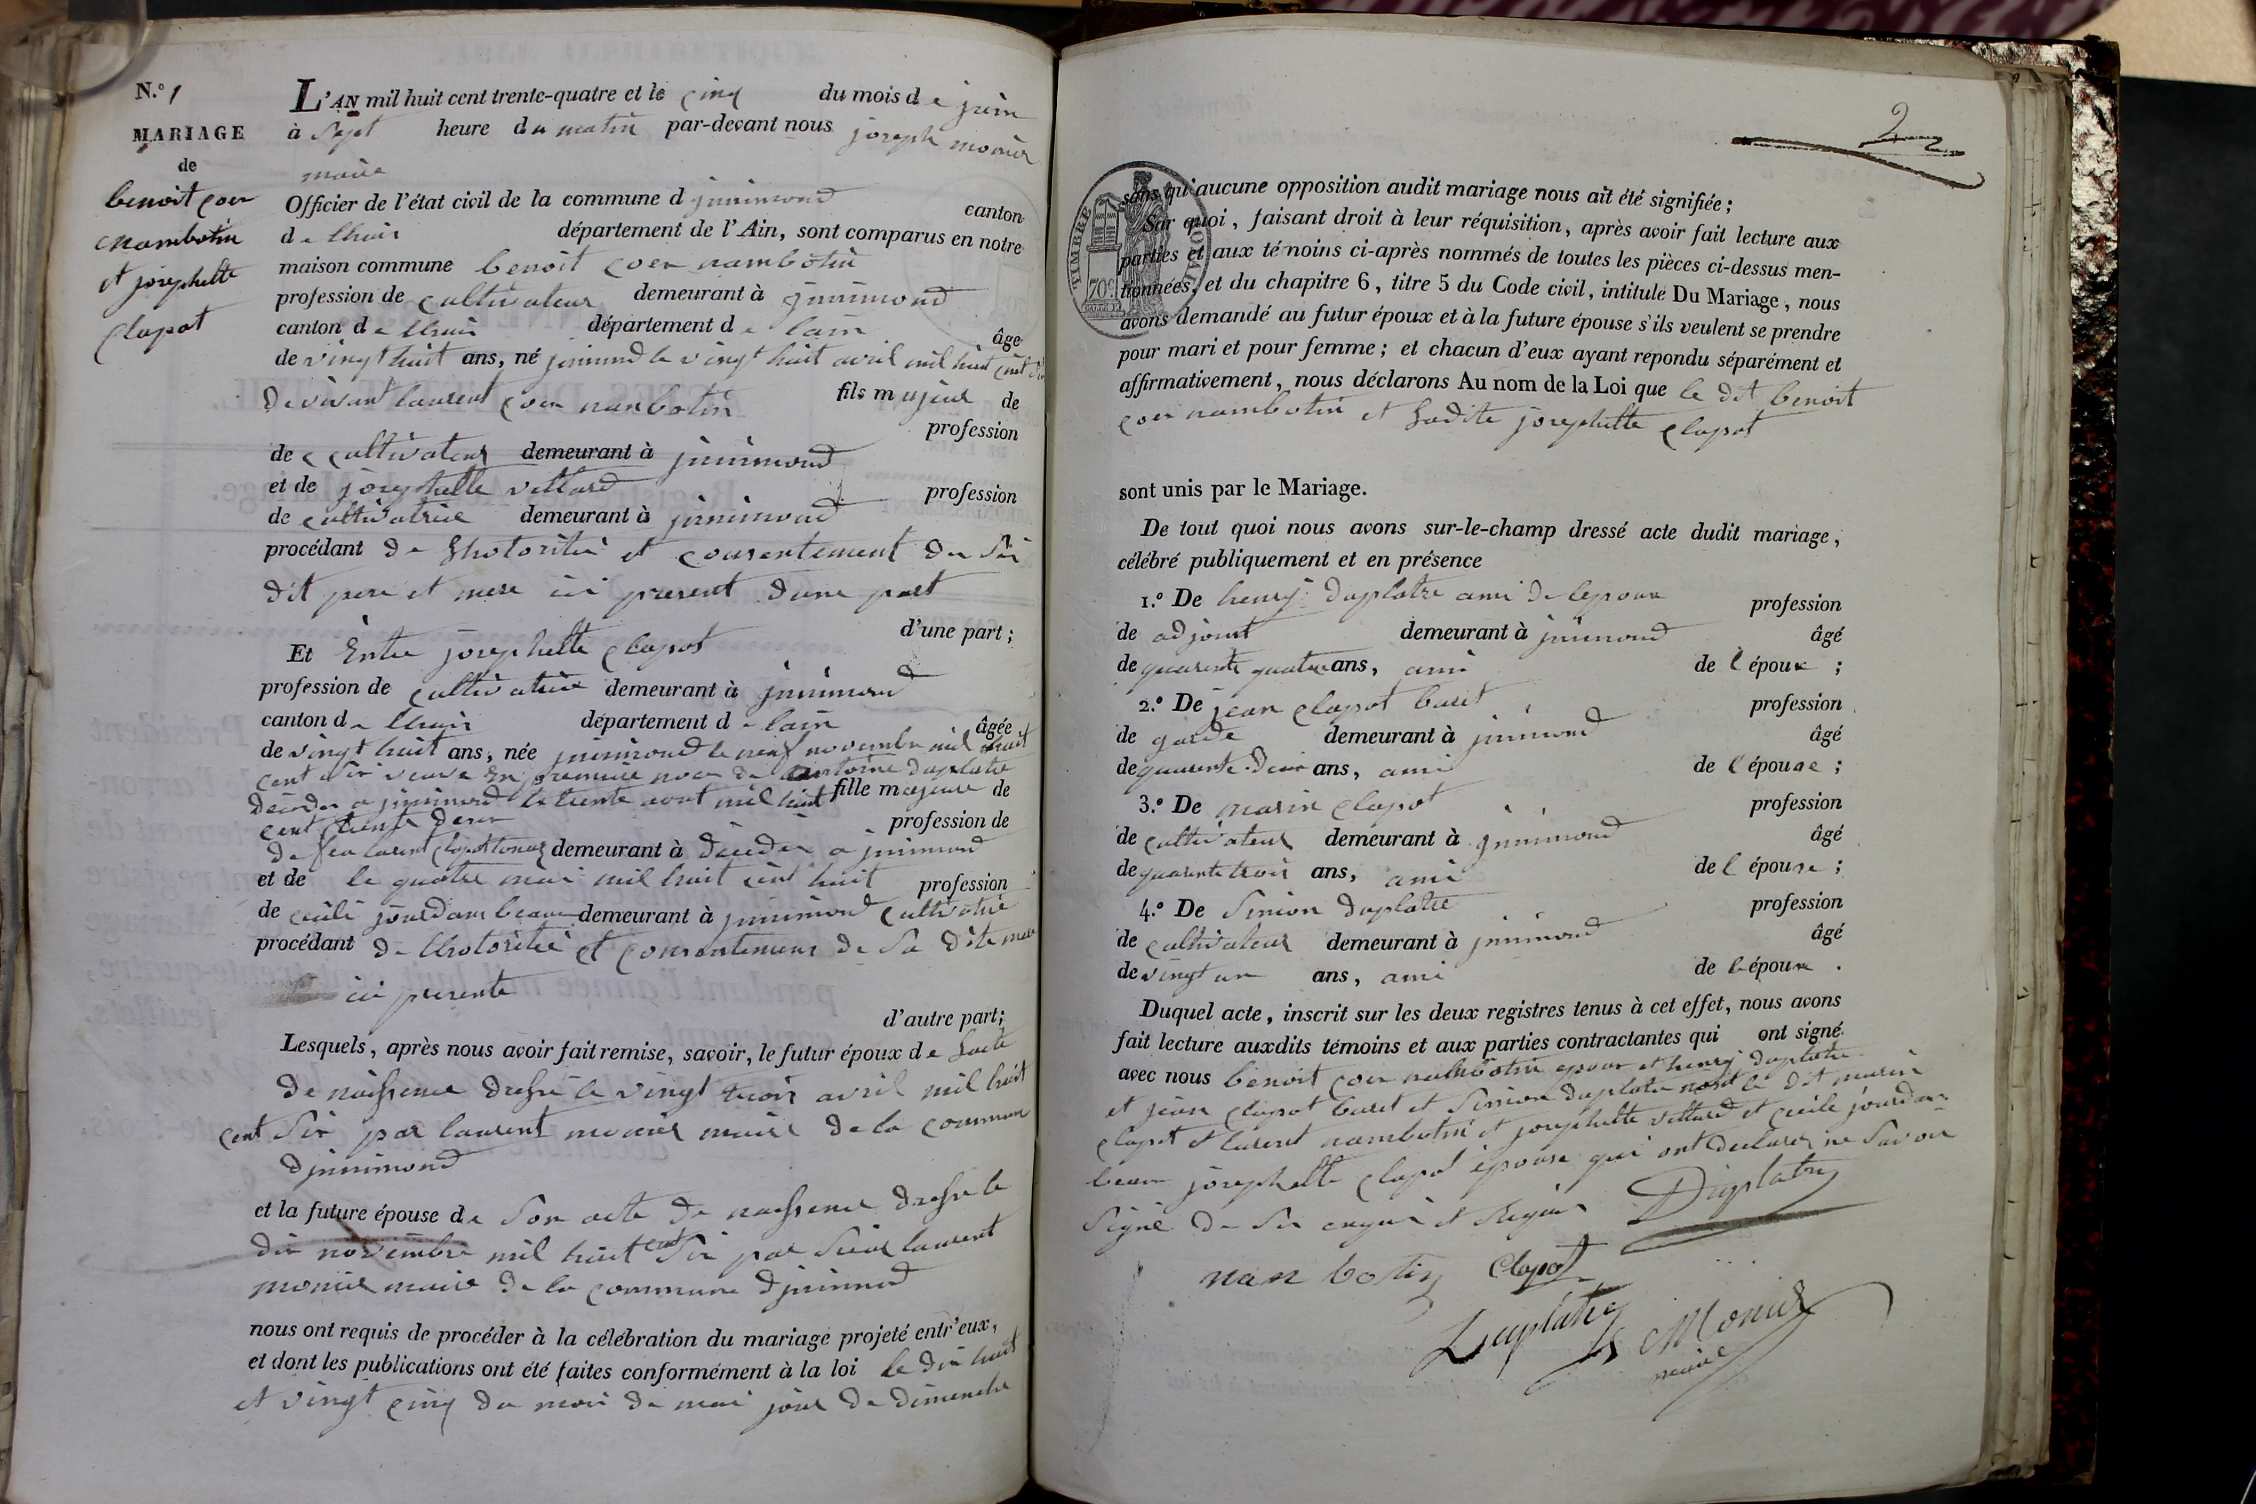 N.° 1
MARIAGE
de
benoit coer
nambotin
et josephelte
clapot
L'AN mil huit cent trente-quatre et le cinq du mois de juin
à sept heure du matin par-devant nous joseph monier
maire
Officier de l'état civil de la commune d jnnimond canton
de lhuis département de l'Ain, sont comparus en notre
maison commune benoit coer nambotin
profession de cultivateur demeurant à jnnimond
canton de lhuis département de lain âgé
de vingt huit ans, né jnnimond le vingt huit avril mil huit cent
de vivant laurent coer nanbotin fils majeur de
profession
de cultivateur demeurant à jnnimond
et de josephelte vettard profession
de cultivatrice demeurant à jnnimond
procédant de lhotoritée et consentement du sus
dit pere et mere ici present dune part
d'une part;
Et Entre josephelte clapot
profession de cultivatrice demeurant à jnnimond
canton de lhuis département de lain âgée
de vingt huit ans, née jnnimond le neuf novembre mil huit
cent six veuve en premiere noce de antoine duplatre
décéder a jnnimond le trente aout mil huit fille majeure de
cent trente deux profession de
de feu laurent clapot demeurant à décéder a jnnimond
et de le quatre mai mil huit cent huit profession
de cecile jourdam beaux demeurant à jnnimond cultivatrice
procédant de lhotoritée et consentement de sa dite mere
ici presente
d'autre part;
Lesquels, après nous avoir fait remise, savoir, le futur époux de lacte
de naissence dressé le vingt trois avril mil huit
cent six par laurent monier maire de la commune
djnnimond
et la future épouse de son acte de naissence dressé le
dix novembre mil huit cent six par sieur laurent
monier maire de la commune djnnimond
nous ont requis de procéder à la célébration du mariage projeté entr'eux,
et dont les publications ont été faites conformément à la loi le dix huit
et vingt cinq du mois de mai jour de dimenche
2
TIMBRE ROYAL
70c
sans qu'aucune opposition audit mariage nous ait été signifiée;
Sur quoi, faisant droit à leur réquisition, après avoir fait lecture aux
parties et aux témoins ci-après nommés de toutes les pièces ci-dessus men-
tionnées, et du chapitre 6, titre 5 du Code civil, intitulé Du Mariage, nous
avons demandé au futur époux et à la future épouse s'ils veulent se prendre
pour mari et pour femme; et chacun d'eux ayant répondu séparément et
affirmativement, nous déclarons Au nom de la Loi que le dit benoit
coer nambotin et ladite josephelte clapot
sont unis par le Mariage.
De tout quoi nous avons sur-le-champ dressé acte dudit mariage,
célébré publiquement et en présence
1.° De henry duplatre ami de lepoux profession
de adjoint demeurant à jnnimond âgé
de quarente quatre ans, ami de l époux ;
2.° De jean clapot buret profession
de garde demeurant à jnnimond âgé
de quarente deux ans, ami de l épouse ;
3.° De marin clapot profession
de cultivateur demeurant à jnnimond âgé
de quarente trois ans, ami de l épouse ;
4.° De simion duplatre profession
de cultivateur demeurant à jnnimond âgé
de vingt un ans, ami de l époux .
Duquel acte, inscrit sur les deux registres tenus à cet effet, nous avons
fait lecture auxdits témoins et aux parties contractantes qui ont signé
avec nous benoit coer nambotin epoux et henry duplatre
et jean clapot buret et simion duplatre nont le dit marin
clapot et laurent nambotin et josephelte vettard et cecile jourdam
beaux josephelte clapot épouse qui ont declarer ne savoir
signé de se enquis et requis Duplatre
nan botin Clapot
Duplatre Monier
maire